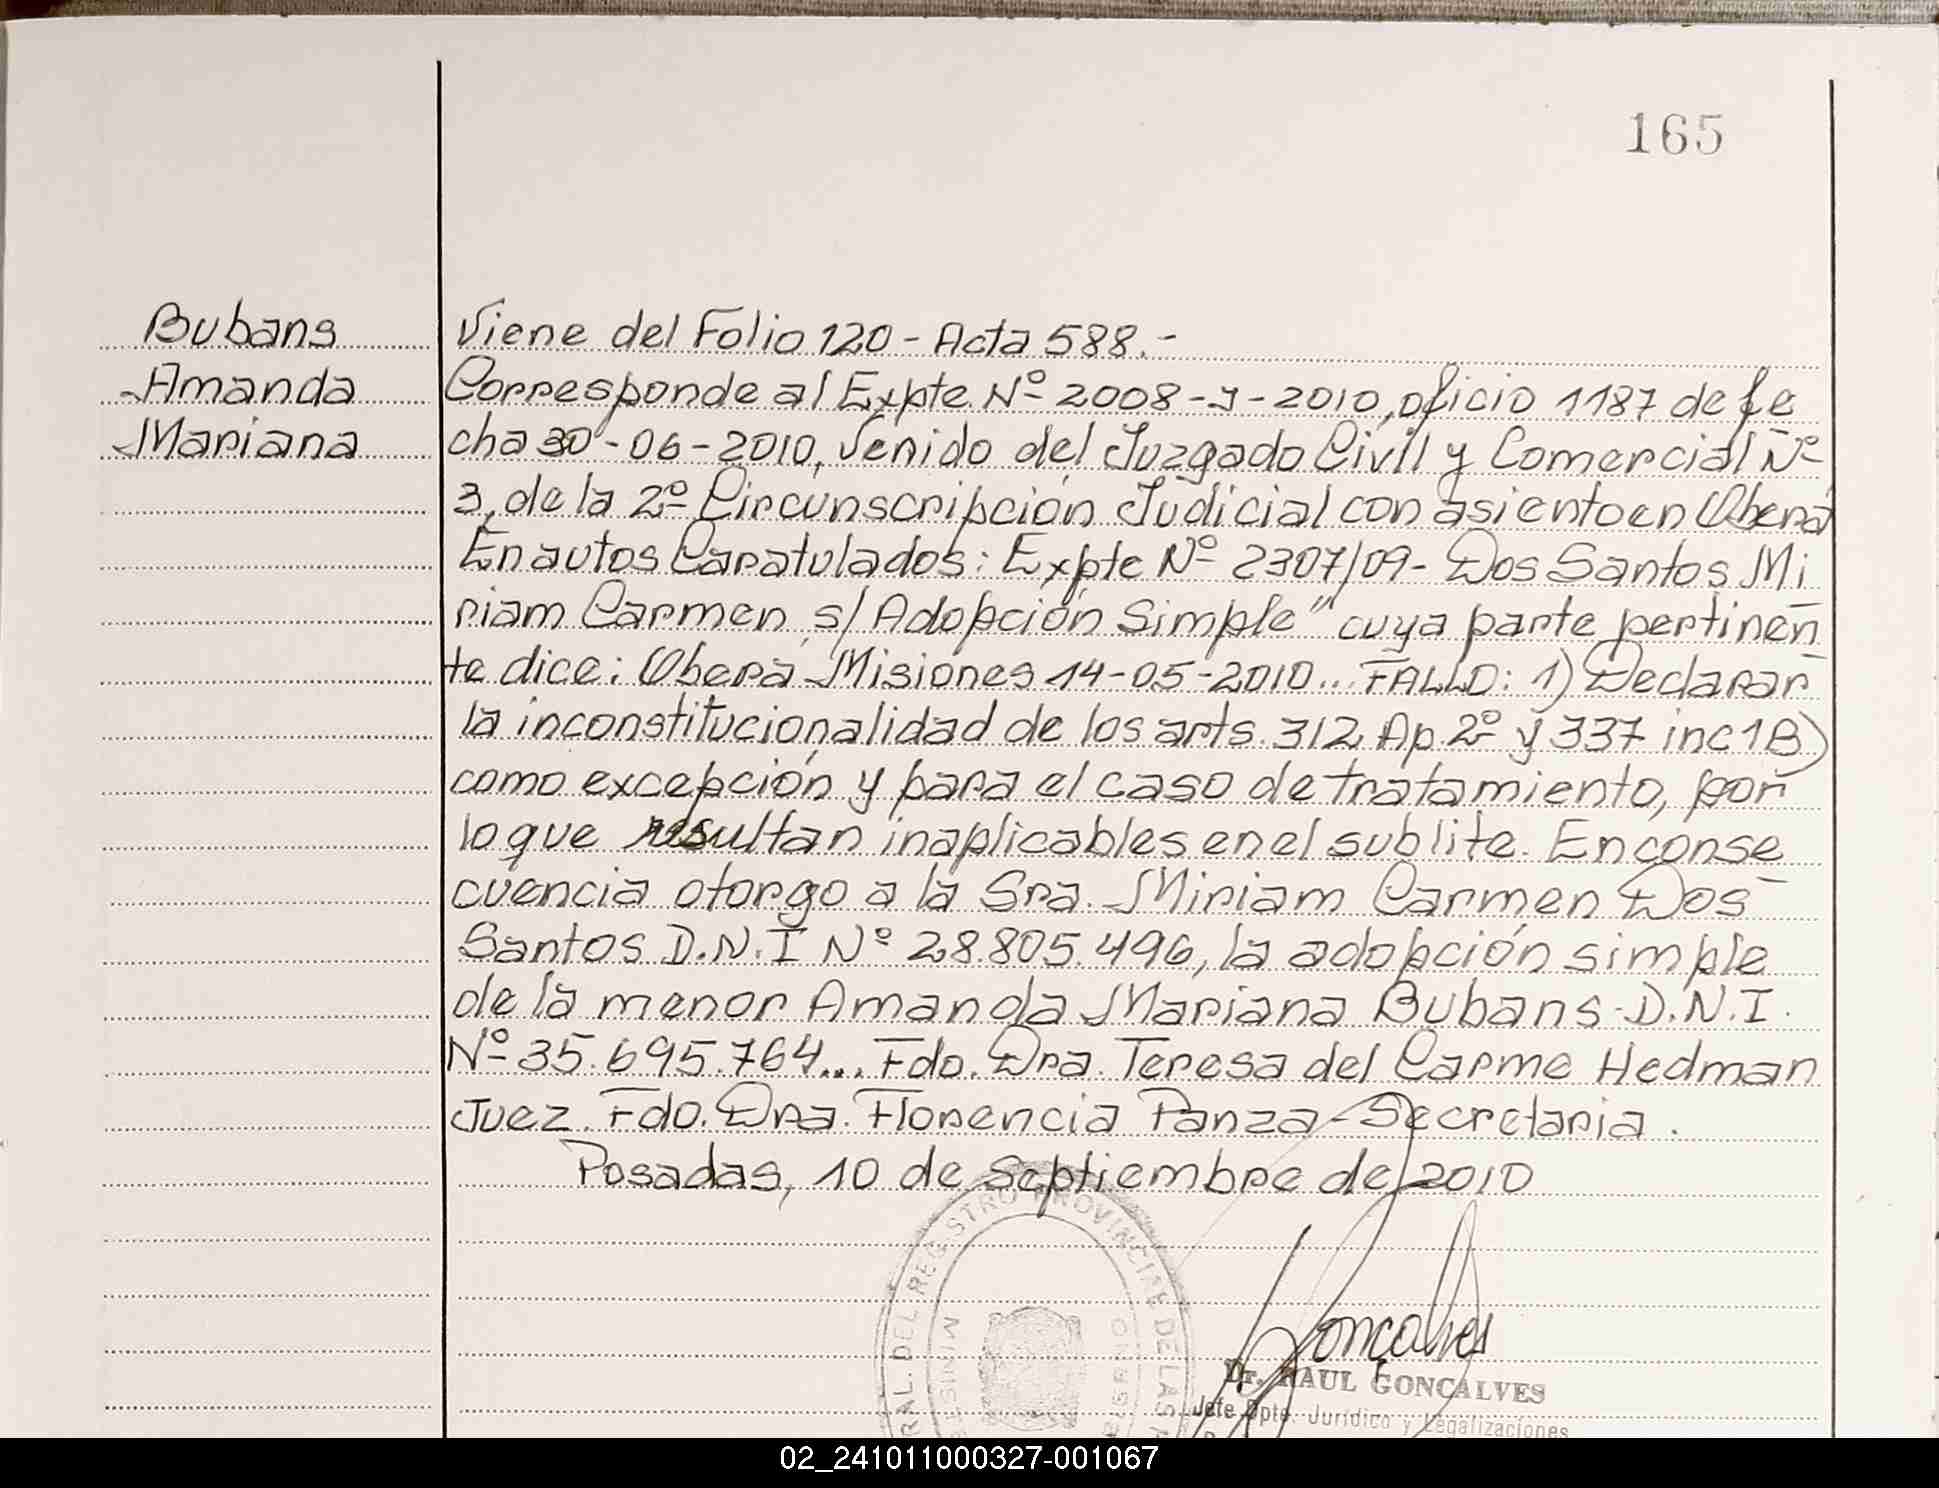 165
Bubans
Amanda
Mariana
Viene del Folio 120 - Acta 588.-
Corresponde al Expte Nº 2008-J-2010, oficio 1187 de fe
cha 30-06-2010, Venido del Juzgado Civil y Comercial Nº
3, de la 2º Circunscripción Judicial con asiento en Oberá
En autos Caratulados: Expte Nº 2307/09- Dos Santos Mi
riam Carmen s/ Adopción Simple" cuya parte pertinen
te dice: Oberá Misiones 14-05-2010... FALLO: 1) Declarar
la inconstitucionalidad de los arts. 312 Ap 2º y 337 inc 1 B)
como excepción y para el caso de tratamiento, por
lo que resultan inaplicables en el sub lite. En conse
cuencia otorgo a la Sra. Miriam Carmen Dos
Santos D.N.I Nº 28.805.496, la adopción simple
de la menor Amanda Mariana Bubans D.N.I.
Nº 35.695.764... Fdo. Dra. Teresa del Carme Hedman
Juez. Fdo. Dra. Florencia Panza - Secretaria.
Posadas, 10 de Septiembre de 2010
RAL. DEL REGISTRO PROVINCIAL DE LAS P
MINIST
GOBIERNO
Gonçalves
Dr. RAUL GONCALVES
Jefe Dpto. Jurídico y Legalizaciones
02_241011000327-001067